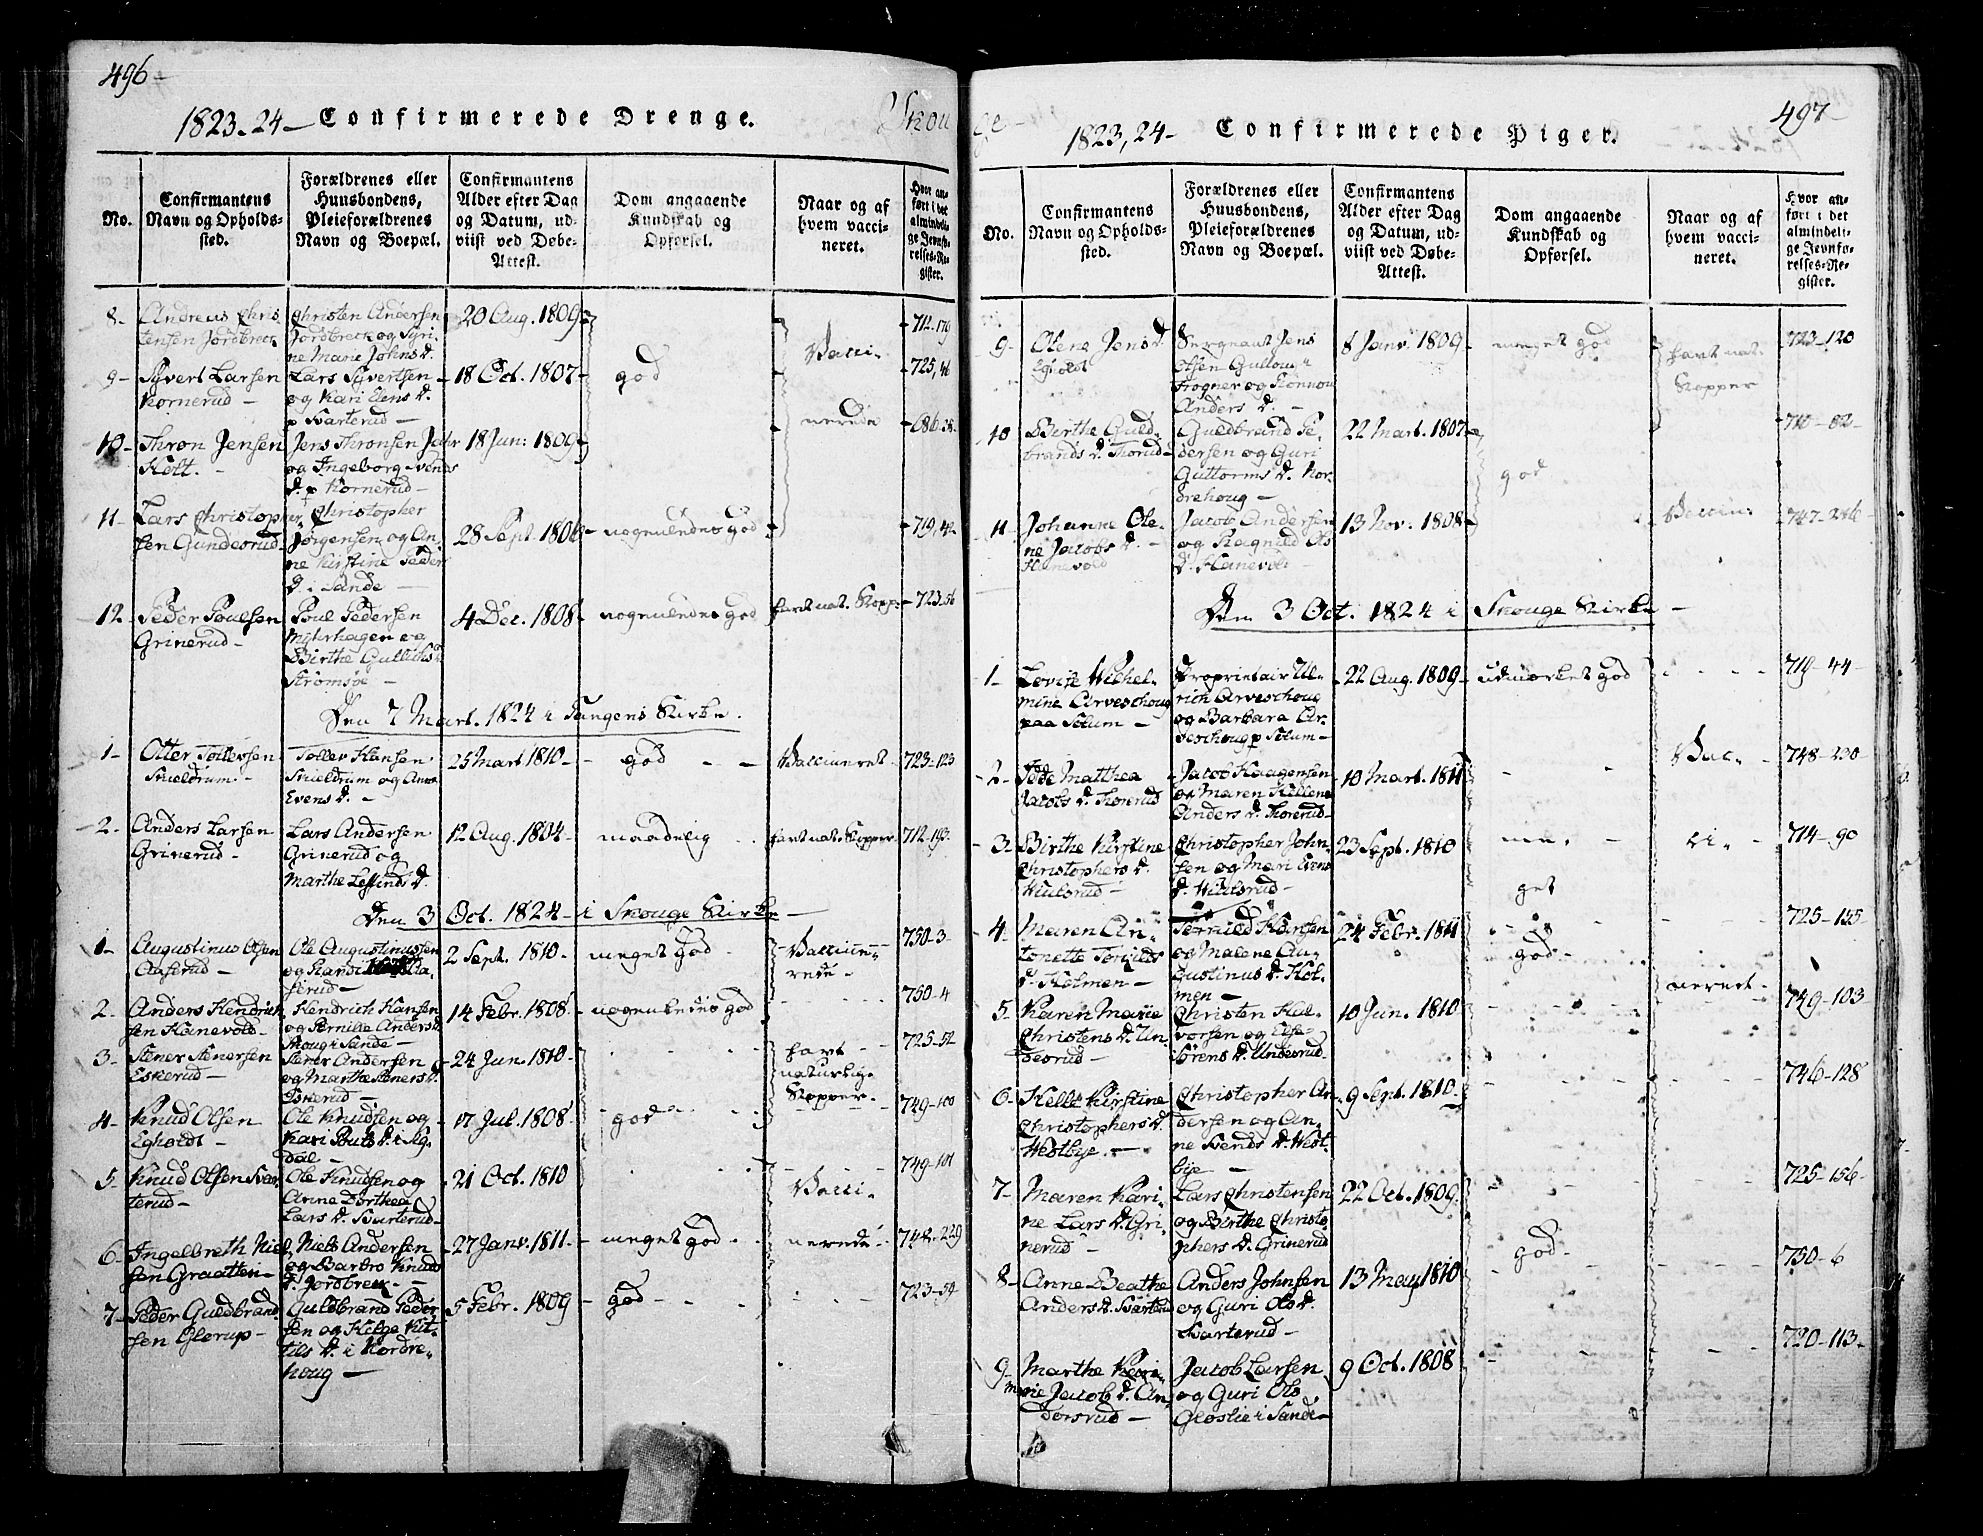 496
1823-24 Confirmerede Drenge.
Skou
No.
Confirmantens
Navn og Opholds-
sted.
Forældrenes eller
Huusbondens,
Pleieforældrenes
Navn og Boepæl.
Confirmantens
Alder efter Dag
og Datum, ud-
viist ved Døbe-
Attest.
Dom angaaende
Kundskab og
Opførsel.
Naar og af
hvem vacci-
neret.
Hvor an-
ført i det
almindeli-
ge Jevnfø-
relses-Re-
gister.
8- Andreas Chris-
tensen Jordbreck
Christen Andersen
Jordbreck og Syri-
ne Marie Johns d.
20 Aug. 1809
712-179
9- Syvert Larsen
Kornerud -
Lars Syvertsen
og Kari Evens d.
p Svarterud -
18 Oct. 1807
god
Vacci-
nerede
725, 46
10- Thron Jensen
Jens Thronsen
og Ingeborg Svends
d. p Kornerud -
18 Jun: 1809
686-38
11- Lars Christopher
sen Gundesrud
Christopher
Jørgensen og An-
ne Kirstine Peder
d. i Sande -
28 Sept. 1806
nogenledes god
719, 42
12- Peder Poulsen
Grinerud -
Poul Pedersen
Myhrhagen og
Birthe Gullichs d
Strømsøe -
4 Dec. 1808
nogenledes god
havt nat. Kopp.
723-56
Den 7 Mart. 1824 i Tangens Kirke.
1- Otter Tollevsen
Snueldrum -
Tollev Hansen
Snueldrum og Anne
Evens d. -
25 Mart 1810
god
Vaccineret
723-123
2- Anders Larsen
Grinerud -
Lars Andersen
Grinerud og
Marthe d.
12 Aug. 1804
maadelig
havt nat. Kopper
712-193
Den 3 Oct. 1824 i Skouge Kirke
1- Augustinus Olsen
Aaserud -
Ole Augustinussen
og Kari Aa-
serud -
2 Sept. 1810
meget god
Vaccine-
rede -
750-3
2- Anders Hendrich
sen Hanevold
Hendrich Hansen
og Pernille Anders d.
Skoug i Sande
14 Febr. 1808
nogenledes god
750-4
3- Stener Stenersen
Eskerud -
Stener Andersen
og Marthe Steners d.
Eskerud -
24 Jun. 1810
havt
naturlig
Kopper -
725-52
4- Knud Olsen
Egholdt -
Ole Knudsen og
Kari Pouls d. i Sig-
dal -
17 Jul. 1808
god
749-100
5- Knud Olsen Svar-
terud -
Ole Knudsen og
Anne Dorthea
Lars d. Svarterud
21 Oct. 1810
Vacci-
749-101
6- Ingelbreth Niel
sen Graatten
Niels Andersen
og Barbro Knuds
d. Jordbreck -
27 Janv. 1811
meget god
nerede
748-229
7- Peder Guldbrand
sen Glerup -
Guldbrand Peder
sen og Helge Kit-
tils d. i Nordre-
houg -
5 Febr. 1809
god
723-54
497
ge
1823, 24- Confirmerede Piger.
No.
Confirmantens
Navn og Opholds-
sted.
Forældrenes eller
Huusbondens,
Pleieforældrenes
Navn og Boepæl.
Confirmantens
Alder efter Dag
og Datum, ud-
viist ved Døbe-
Attest.
Dom angaaende
Kundskab og
Opførsel.
Naar og af
hvem vacci-
neret.
Hvor an-
ført i det
almindeli-
ge Jevnfø-
relses-Re-
gister.
9- Olene Jens d.
Egholdt
Sergeant Jens
Olsen
Frogner og Rønnou
Anders d. -
8 Janv. 1809
meget god
havt nat.
Kopper
723-120
10 Birthe Guld-
brands d. Thorud
Guldbrand Pe-
dersen og Guri
Guttorms d. Nor-
drehoug -
22 Mart. 1807
god
710-82
11- Johanne Ole-
ne Jacobs d. -
Hanevold
Jacob Andersen
og Ragnild Ols
d. Hanevold -
13 Nov. 1808
Vaccin.
747-286
Den 3 Oct. 1824 i Skouge Kirke -
1- Lovise Wilhel-
mine Arveschoug
paa Solum -
Proprietair Ul-
rich Arveschoug
og Barbara Ar-
veschoug p Solum -
22 Aug. 1809
udmærket god
719-44
2- Matthea
Jacobs d. Thorerud
Jacob Haagensen
og Maren Hellene
Anders d. Thorerud
10 Mart. 1811
Vac-
748-230
3- Birthe Kirstine
Christophers d.
Hiulsrud -
Christopher John-
sen og Mari Evens
d. Hiulsrud -
23 Sept. 1810
me-
get
ci-
714-90
4- Maren An-
tonette Torjilds
d. Holmen -
Hansen
og Malene Au-
gustinus d. Hol-
men -
24 Febr. 1811
god
725-155
5- Karen Marie
Christens d. Un-
desrud -
Christen Hal-
vorsen og Else
Sørens d. Undesrud
10 Jun. 1810
nerede
749-103
6- Helle Kirstine
Christophers d.
Westbye -
Christopher An-
dersen og An-
ne Svends d. West-
bye -
9 Sept. 1810
746-128
7- Maren Kari-
ne Lars d. Gri-
nerud -
Lars Christensen
og Birthe Christo-
phers d. Grinerud
22 Oct. 1809
god
725-156
8- Anne Beathe
Anders d. Svarterud
Anders Johnsen
og Guri Ols d.
Svarterud -
13 May 1810
750-6
9- Marthe
marie Jacob d. An-
dorsrud -
Jacob Larsen
og Guri Ols
i Sande -
9 Oct. 1808
720-113